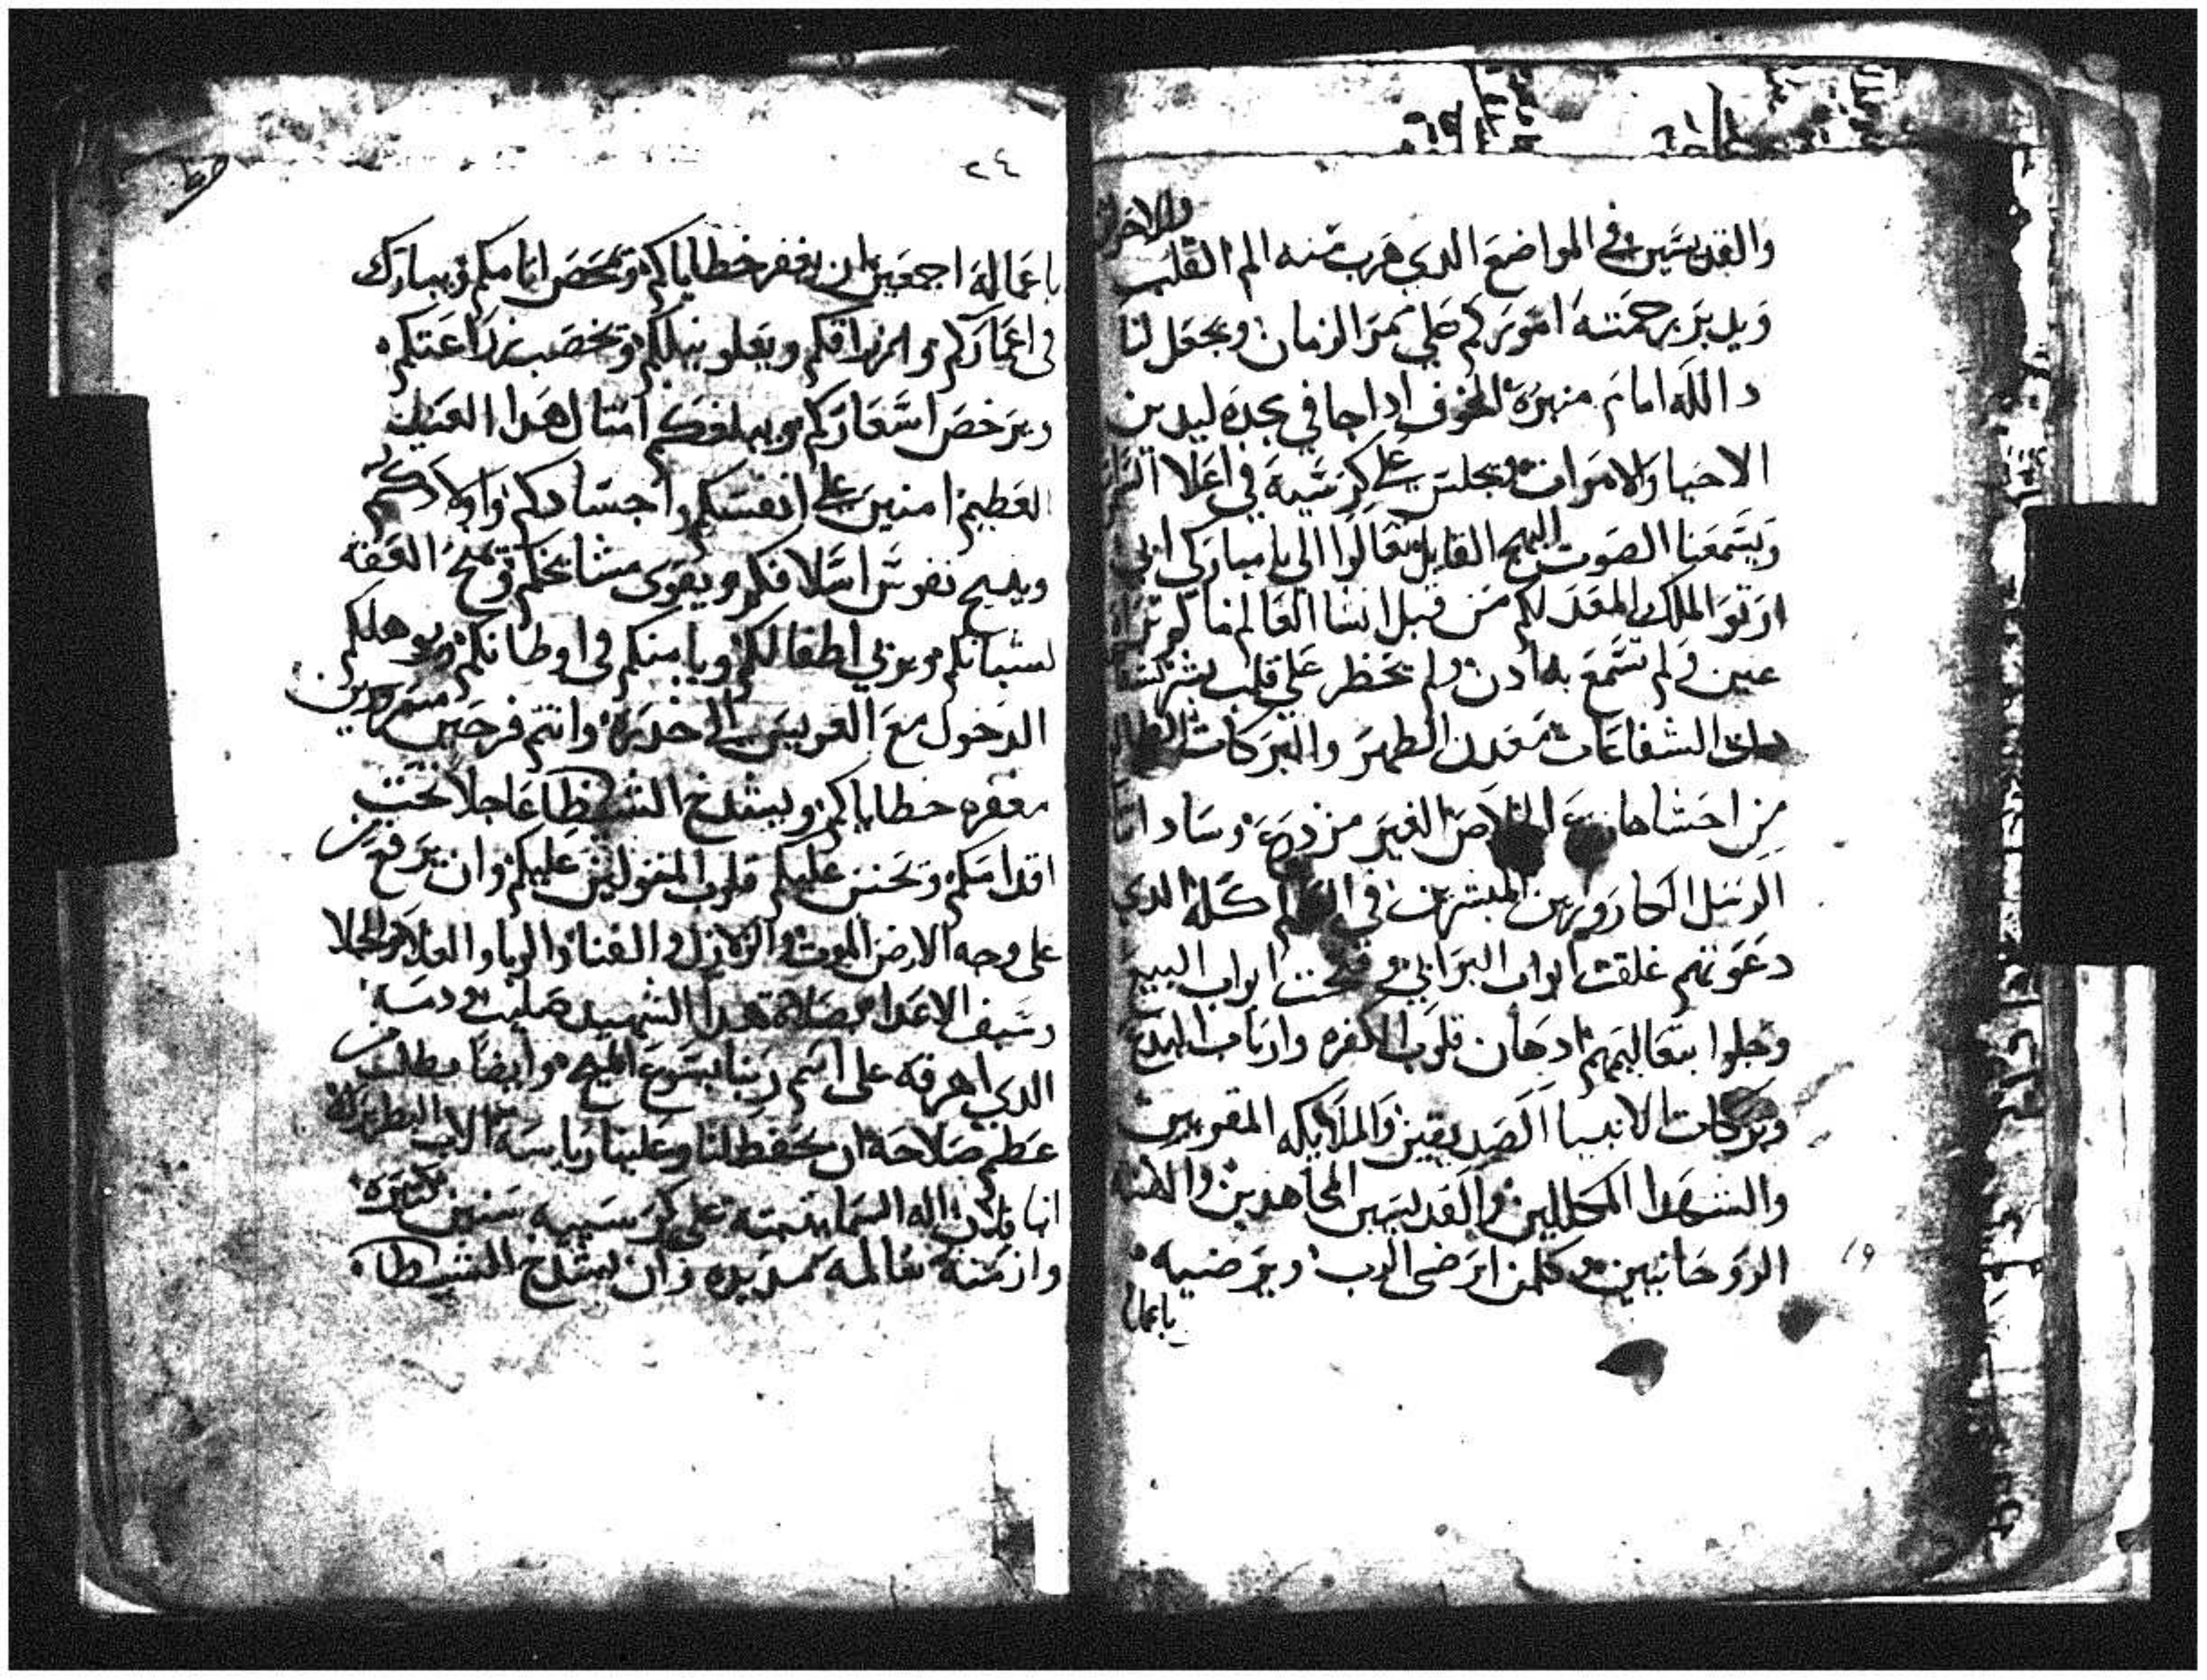 والاحزان
والقديسين في المواضع الدي هرب منه الم القلب
ويدبر برحمته اموركم علي ممر الزمان ويجعل لنا
دالله امام منبره المخوف اداجا في مجده ليدين
الاحيا والاموات ويجلس علي كرسيه في اعلا
ويسمعنا الصوت البهج القايل تعالوا الي يا مباركي ابي
ارتو الملك المعد لكم من قبل انشا العالم ما لم تراه
عين ولم تسمع به ادن ولم يخطر علي قلب بشر
الشفاعات معدن الطهر والبركات
من احشاها الخلاص الغير مزدرع وسادا
الرسل الكارورين المبشرين في كله الدي
دعوتهم غلقت ابواب البرابي وفتحت ابواب البيع
وجلوا بتعاليمهم ادهان قلوب الكفره وارباب البدع
وبركات الانبيا الصديقين والملايكه المقربين
والشهدا المكللين والقديسين المجاهدين
الروحانيين وكلمن ارضى الرب ويرضيه
باعما
٢٤
باعماله اجمعين ان يغفر خطاياكم ويمحص اتامكم ويبارك
في اعماركم وارزاقكم ويعلو نيلكم ويخصب زراعتكم
ويرخص اسعاركم ويبلغكم امتال هدا العيد
العظيم امنين علي انفسكم واجسادكم واولادكم
وينيح نفوس اسلافكم ويقوى مشايخكم ويمنح العفه
لشبانكم ويربي اطفالكم ويامنكم في اوطانكم ويوهلكم
الدخول مع العريس الي خدره وانتم فرحين مسرورين
مغفره خطاياكم ويشدخ الشيطا عاجلا تحت
اقدامكم ويحنن عليكم قلوب المتوليين عليكم وان يرفع
على وجه الارض الموت والزلازل والفنا والوبا والغلا والجلا
وسيف الاعدا بصلاة هدا الشهيد ودمه
الدي اهرقه على اسم ربنا يسوع المسيح وايضا نطلب من
عظم صلاحه ان يحفظ لنا وعلينا رياسة الاب البطريرك
انبا اله السما يتبته على كرسييه سنين كتيره
وازمنه سالمه مديده وان يشدخ الشيطا